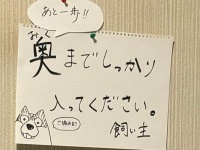 あと一歩!!
おく
奥までしっかり
入ってください。
飼い主